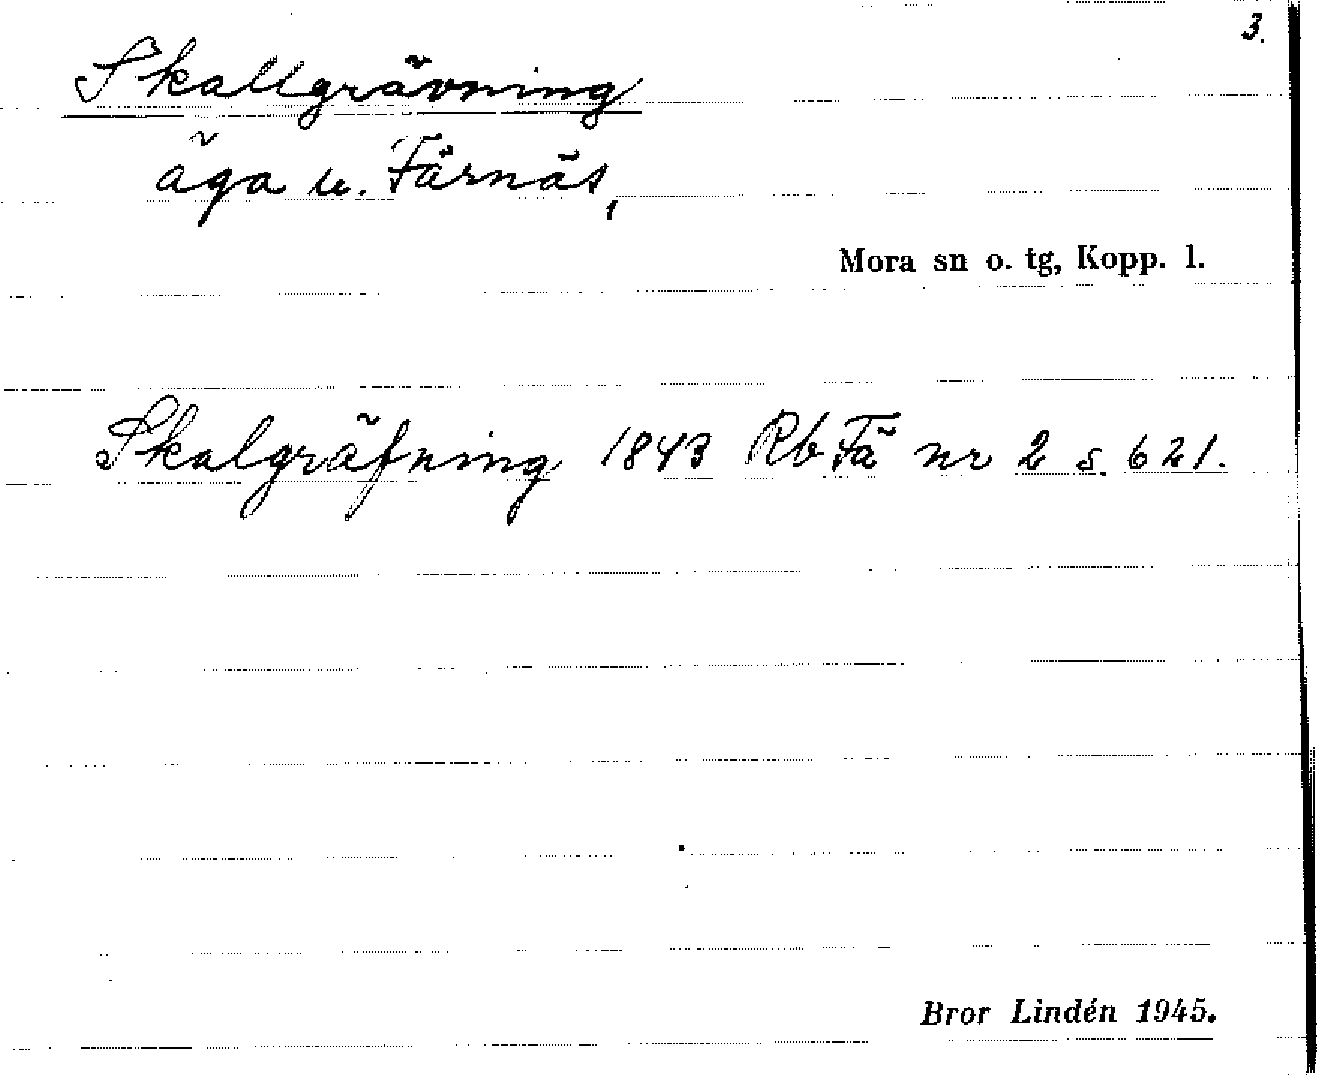 3.
Skallgrävning
äga u. Färnäs,
Mora sn o. tg, Kopp. l.
Skalgräfning 1843 Rb Fä nr 2 s. 621.
Bror Lindén 1945.